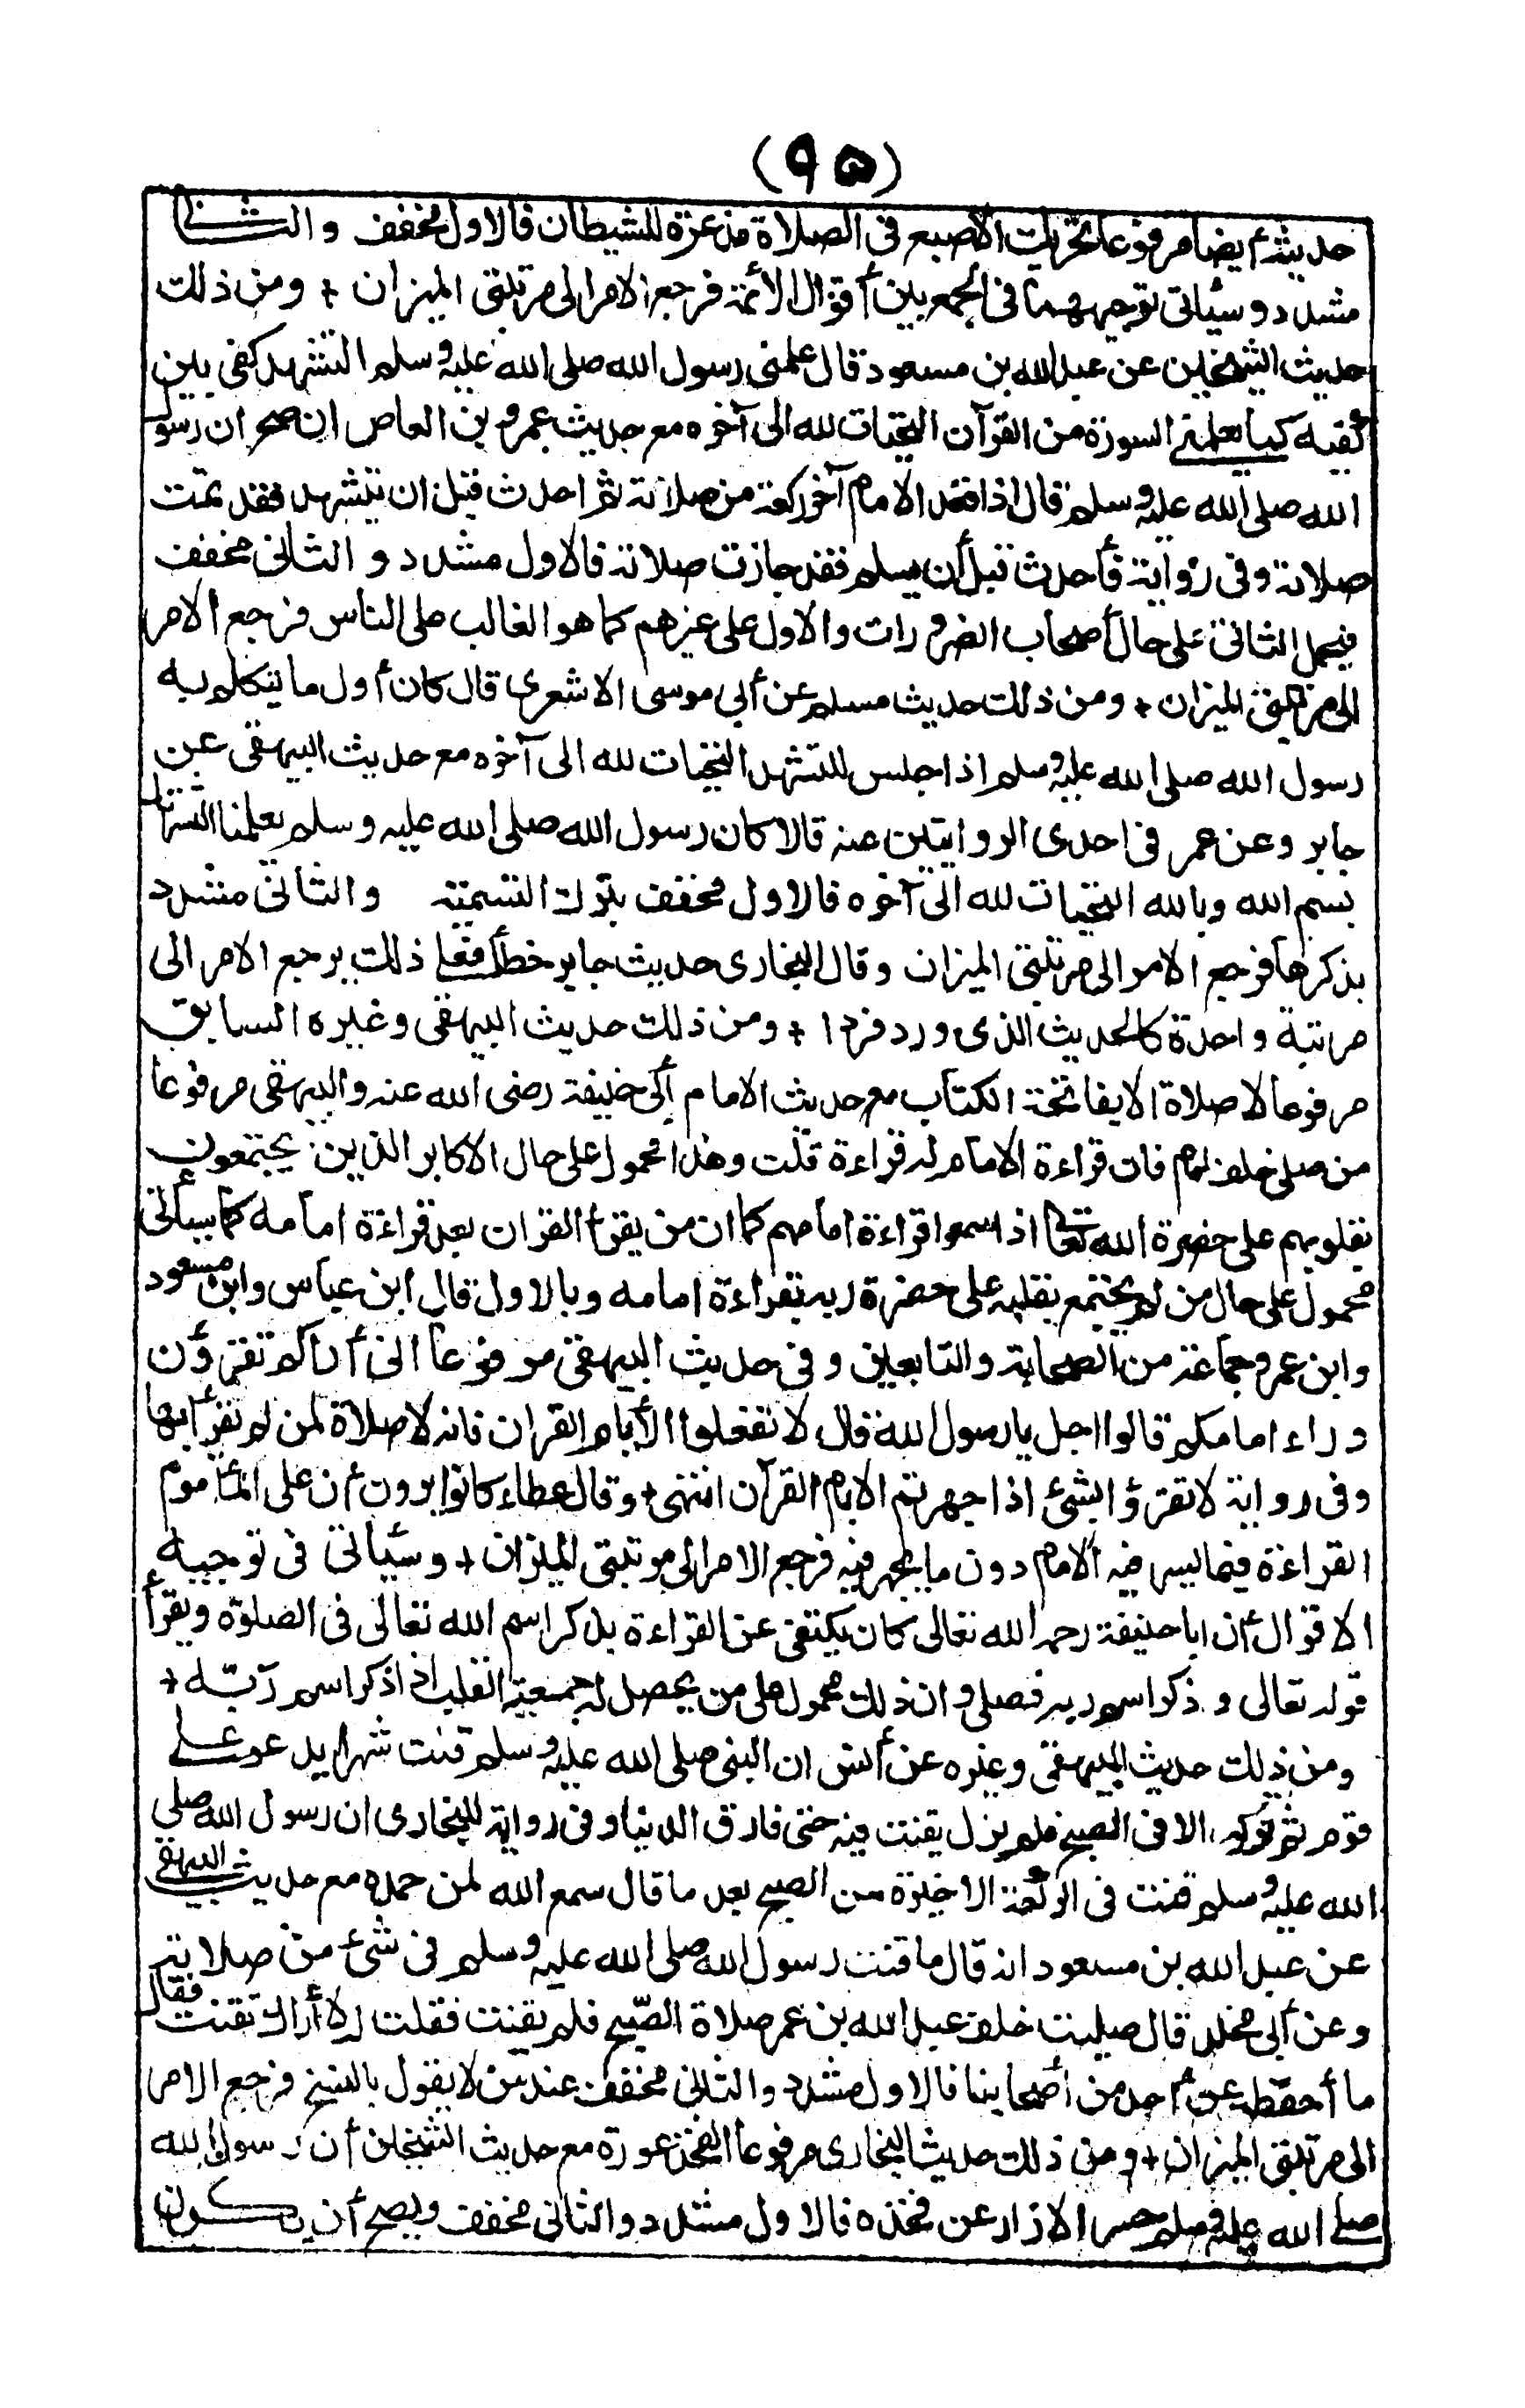 (٩٥)
حديثه أيضا مرفوعا تحريك الأصبع في الصلاة مذعرة للشيطان فالاول مخفف والثاني
مشدد وسيأتي توجيههما في الجمع بين أقوال الأئمة فرجع الامر الى مرتبتي الميزان + ومن ذلك
حديث الشيخين عن عبد الله بن مسعود قال علمني رسول الله صلى الله عليه وسلم التشهد كفي بين
كفيه كما يعلمني السورة من القرآن التحيات لله الى آخره مع حديث عمرو بن العاص ان صح ان رسول
الله صلى الله عليه وسلم قال اذا قعد الامام آخر ركعة من صلاته ثم احدث قبل ان يتشهد فقد تمت
صلاته وفي رواية فأحدث قبل أن يسلم فقد جازت صلاته فالاول مشدد والثاني مخفف
فيحمل الثاني على حال أصحاب الضرورات والاول على غيرهم كما هو الغالب على الناس فرجع الامر
الى مرتبتي الميزان + ومن ذلك حديث مسلم عن أبي موسى الاشعري قال كان أول ما يتكلم به
رسول الله صلى الله عليه وسلم اذا جلس للتشهد التحيات لله الى آخره مع حديث البيهقي عن
جابر وعن عمر في احدى الروايتين عنه قالا كان رسول الله صلى الله عليه وسلم يعلمنا التشهد
بسم الله وبالله التحيات لله الى آخره فالاول مخفف بترك التسمية والثاني مشدد
بذكرها فرجع الامر الى مرتبتي الميزان وقال البخاري حديث جابر خطأ فعلى ذلك يرجع الامر الى
مرتبة واحدة كالحديث الذي ورد فردا + ومن ذلك حديث البيهقي وغيره السابق
مرفوعا لا صلاة الا بفاتحة الكتاب مع حديث الامام أبي حنيفة رضي الله عنه والبيهقي مرفوعا
من صلى خلف امام فان قراءة الامام له قراءة قلت وهذا محمول على حال الاكابر الذين يجتمعون
بقلوبهم على حضرة الله تعالى اذا سمعوا قراءة امامهم كما ان من يقرأ القران بعد قراءة امامه كما سيأتي
محمول على حال من لم يجتمع بقلبه على حضرة ربه بقراءة امامه وبالاول قال ابن عباس وابن مسعود
وابن عمر وجماعة من الصحابة والتابعين وفي حديث البيهقي مرفوعا انى أراكم تقرؤن
وراء امامكم قالوا اجل يا رسول الله قال لا تفعلوا الا بأم القران فانه لا صلاة لمن لم يقرأ بها
وفي رواية لا تقرؤا بشئ اذا جهرتم الا بام القرآن انتهى + وقال عطاء كانوا يرون أن على المأموم
القراءة فيما يسر فيه الامام دون ما يجهر فيه فرجع الامر الى مرتبتي الميزان + وسيأتي في توجيه
الاقوال أن ابا حنيفة رحمه الله تعالى كان يكتفي عن القراءة بذكر اسم الله تعالى في الصلوة ويقرأ
قوله تعالى وذكر اسم ربه فصلى وان ذلك محمول على من يحصل له جمعية القلب اذا ذكر اسم ربه +
ومن ذلك حديث البيهقي وغيره عن أنس ان النبي صلى الله عليه وسلم قنت شهرا يدعو على
قوم ثم تركه الا في الصبح فلم يزل يقنت فيه حتى فارق الدنيا وفي رواية للبخاري ان رسول الله صلى
الله عليه وسلم قنت في الركعة الاخيرة من الصبح بعد ما قال سمع الله لمن حمده مع حديث البيهقي
عن عبد الله بن مسعود انه قال ما قنت رسول الله صلى الله عليه وسلم في شئ من صلاته
وعن أبي مخلد قال صليت خلف عبد الله بن عمر صلاة الصبح فلم يقنت فقلت له لا أراك تقنت فقال
ما أحفظ عن أحد من أصحابنا فالاول مشدد والثاني مخفف عند من لا يقول بالنسخ فرجع الامر
الى مرتبتي الميزان + ومن ذلك حديث البخاري مرفوعا الفخذ عورة مع حديث الشيخين أن رسول الله
صلى الله عليه وسلم حسر الازار عن فخذه فالاول مشدد والثاني مخفف ويصح أن يكون